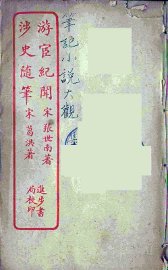 筆記小說大觀
游宦紀聞 宋張世南著
涉史隨筆 宋葛洪著
進步書
局校印